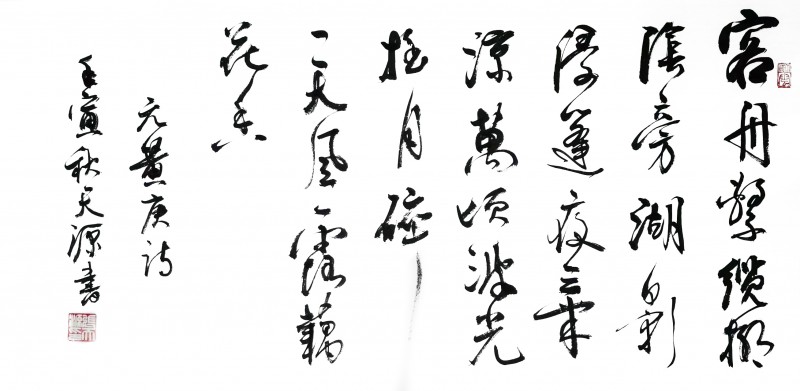 客舟繫纜柳
陰旁湖影
侵篷夜氣
涼萬頃波光
搖月碎
一天風露藕
花香
元黃庚詩
壬寅秋天源書